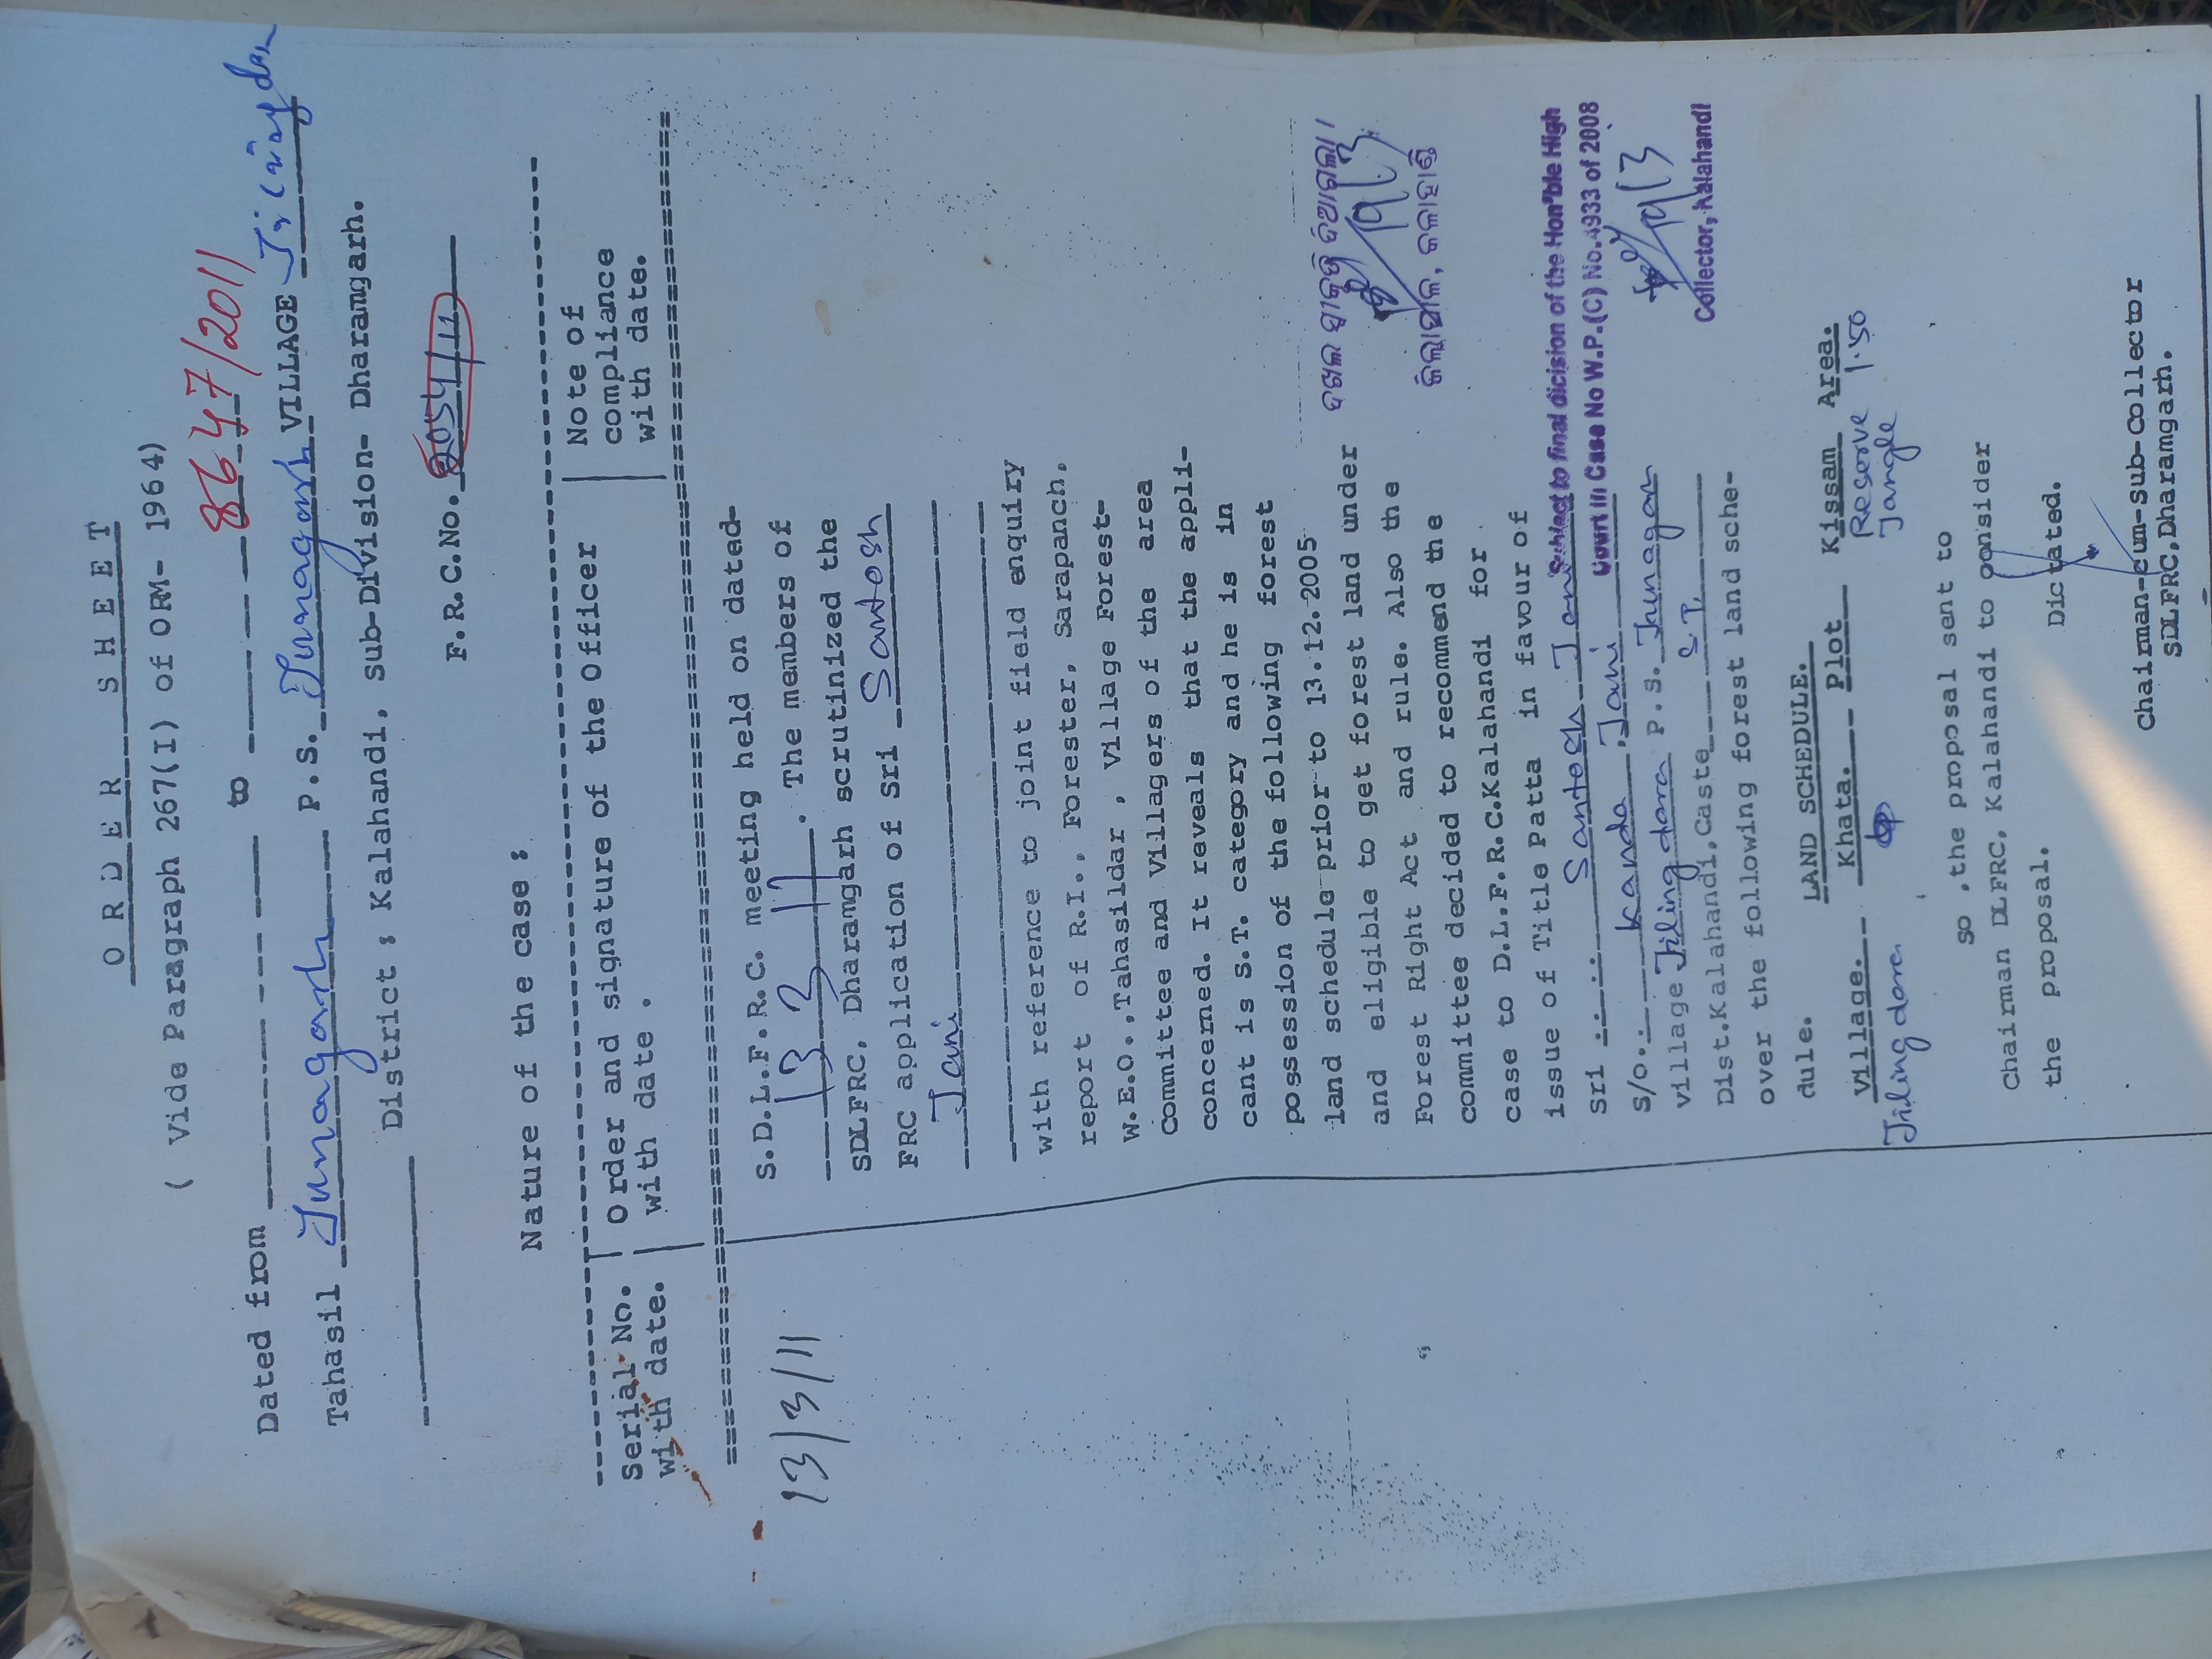 O R D E R   S H E E T
( Vide Paragraph 267(I) of ORM- 1964)
Dated from ____ to ____ 8647/2011
Tahasil Junagarh P.S. Junagarh VILLAGE
District : Kalahandi, sub-Division- Dharamgarh.
F.R.C.No. 2054/11
Nature of the case :
Serial No. with date. | Order and signature of the Officer with date . | Note of compliance with date.
13/3/11
S.D.L.F.R.C. meeting held on dated-
13 3 11. The members of
SDLFRC, Dharamgarh scrutinized the
FRC application of Sri Santosh
Jani
with reference to joint field enquiry
report of R.I., Forester, Sarapanch,
W.E.O.,Tahasildar , Village Forest-
Committee and Villagers of the area
concerned. It reveals that the appli-
cant is S.T. category and he is in
possession of the following forest
land schedule prior to 13.12.2005
and eligible to get forest land under
Forest Right Act and rule. Also the
committee decided to recommend the
case to D.L.F.R.C.Kalahandi for
issue of Title Patta in favour of
Sri Santosh Jani
S/o. Kanda Jani
village Jilingdara P.S. Junagarh
Dist.Kalahandi,Caste S.T.
over the following forest land sche-
dule.
LAND SCHEDULE.
Village. Khata. Plot Kissam Area.
Jilingdara Reserve Jangle 1.50
so ,the proposal sent to
Chairman DLFRC, Kalahandi to consider
the proposal.
Dictated.
Chairman-cum-Sub-Collector
SDLFRC,Dharamgarh.
ଦଖଲ ସ୍ୱୀକୃତି ଦିଆଗଲା ।
19/3
ଜିଲ୍ଲାପାଳ, କଳାହାଣ୍ଡି
Subject to final dicision of the Hon'ble High
Court in Case No W.P.(C) No.4933 of 2008
19/3
Collector, Kalahandi